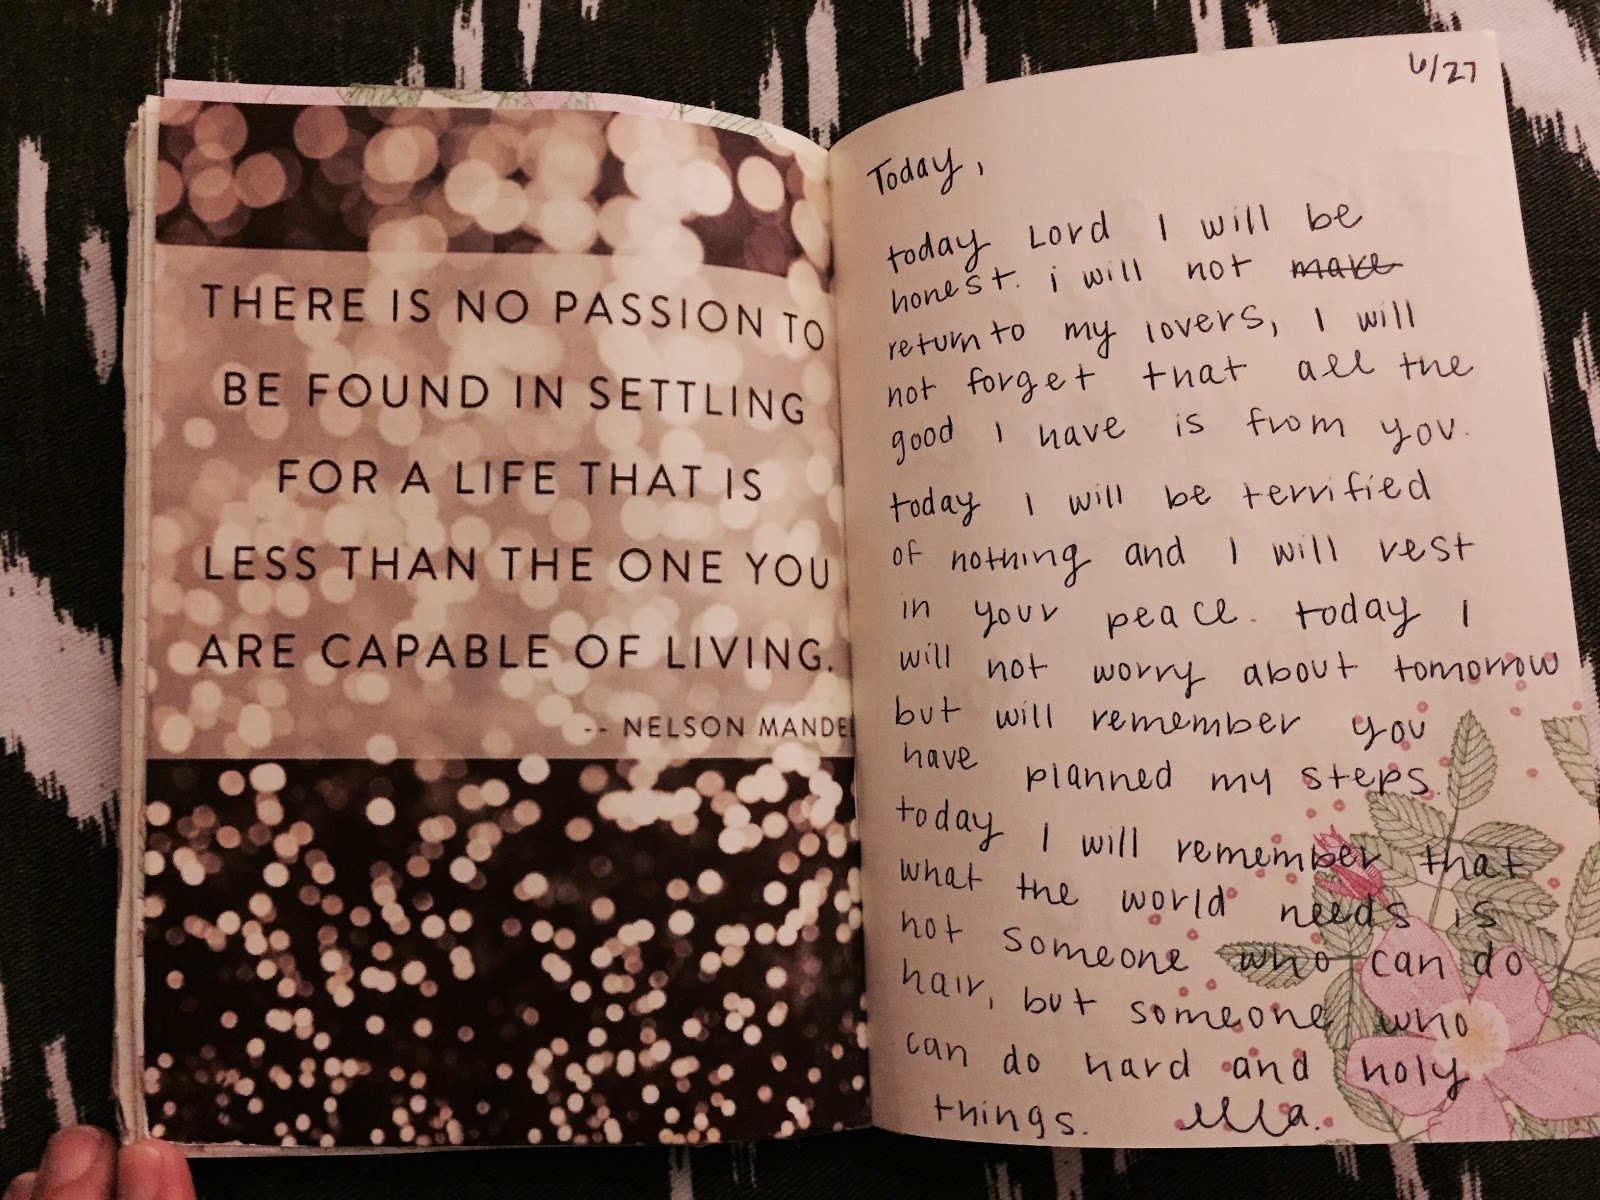 THERE IS NO PASSION TO
BE FOUND IN SETTLING
FOR A LIFE THAT IS
LESS THAN THE ONE YOU
ARE CAPABLE OF LIVING.
-- NELSON MANDEL
6/27
Today,
today Lord I will be
honest. i will not make
return to my lovers, I will
not forget that all the
good I have is from you.
today I will be terrified
of nothing and I will rest
in your peace. today I
will not worry about tomorrow
but will remember you
have planned my steps.
today I will remember that
what the world needs is
not someone who can do
hair, but someone who
can do hard and holy
things.